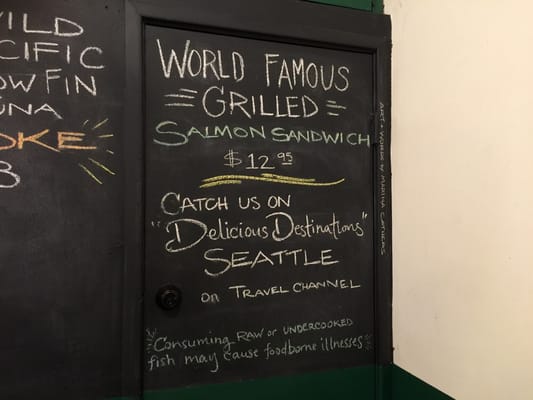 WORLD FAMOUS
GRILLED
SALMON SANDWICH
$12.95
CATCH US ON
"Delicious Destinations"
SEATTLE
on TRAVEL CHANNEL
Consuming RAW or UNDERCOOKED
fish may cause foodborne illnesses
ILD
CIFIC
OW FIN
UNA
OKE
ART & WORDS by MARTHA